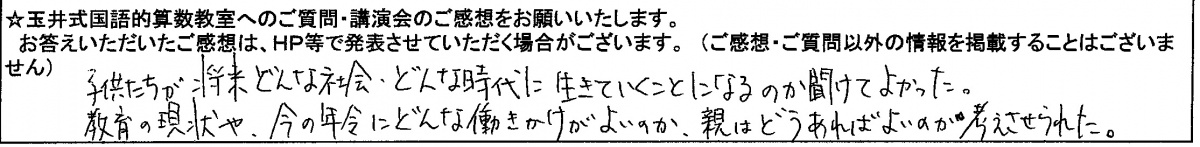 ☆玉井式国語的算数教室へのご質問・講演会のご感想をお願いいたします。
お答えいただいたご感想は、HP等で発表させていただく場合がございます。（ご感想・ご質問以外の情報を掲載することはございま
せん）
子供たちが将来どんな社会・どんな時代に生きていくことになるのか聞けてよかった。
教育の現状や、今の年令にどんな働きかけがよいのか、親はどうあればよいのか考えさせられた。